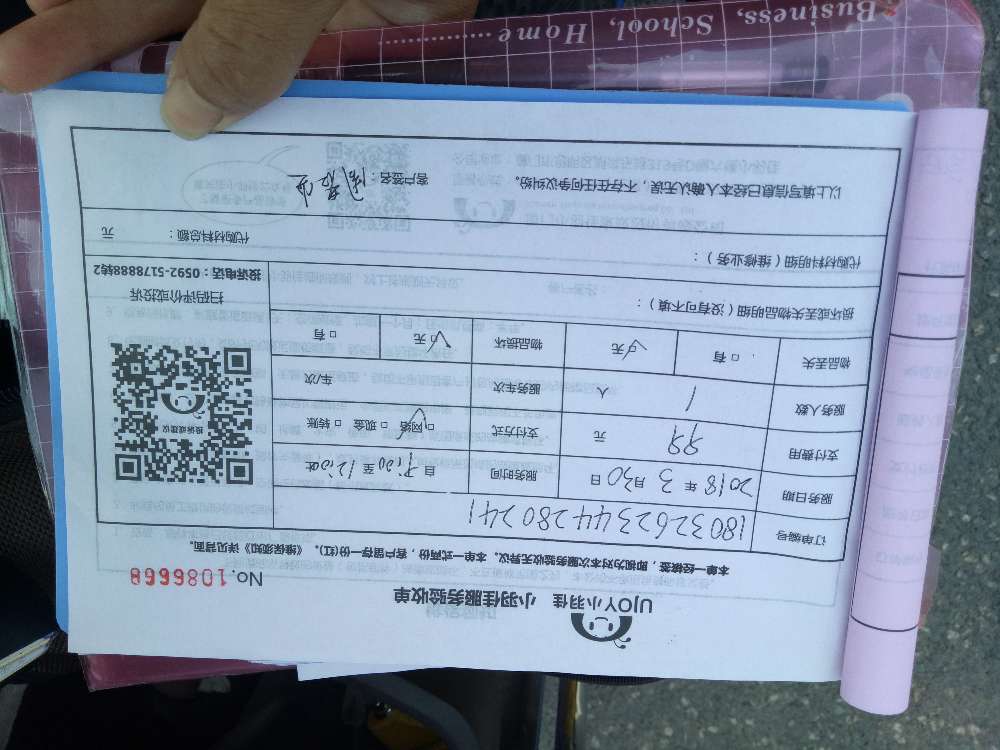 UJOY小羽佳 小羽佳服务验收单
No. 1086668
本单一经签署，即视为对本次服务验收无异议。本单一式两份，客户留存一份(红)。《维保须知》详见背面。
订单编号 180326234428 0241
服务日期 2018 年 3 月 30 日 服务时间 自 9:00 至 12:00
支付费用 99 元 支付方式 □网络 □现金 □转账
服务人数 1 人 服务车次 车/次
物品丢失 □有 □无 物品损坏 □无 □有
损坏或丢失物品明细（没有可不填）：
投诉或建议
扫码评价或投诉
投诉电话：0592-5178888转2
代购材料明细（维修业务）：
代购材料总额： 元
以上填写信息已经本人确认无误，不存在任何争议纠纷。 客户签名：
Business, School, Home